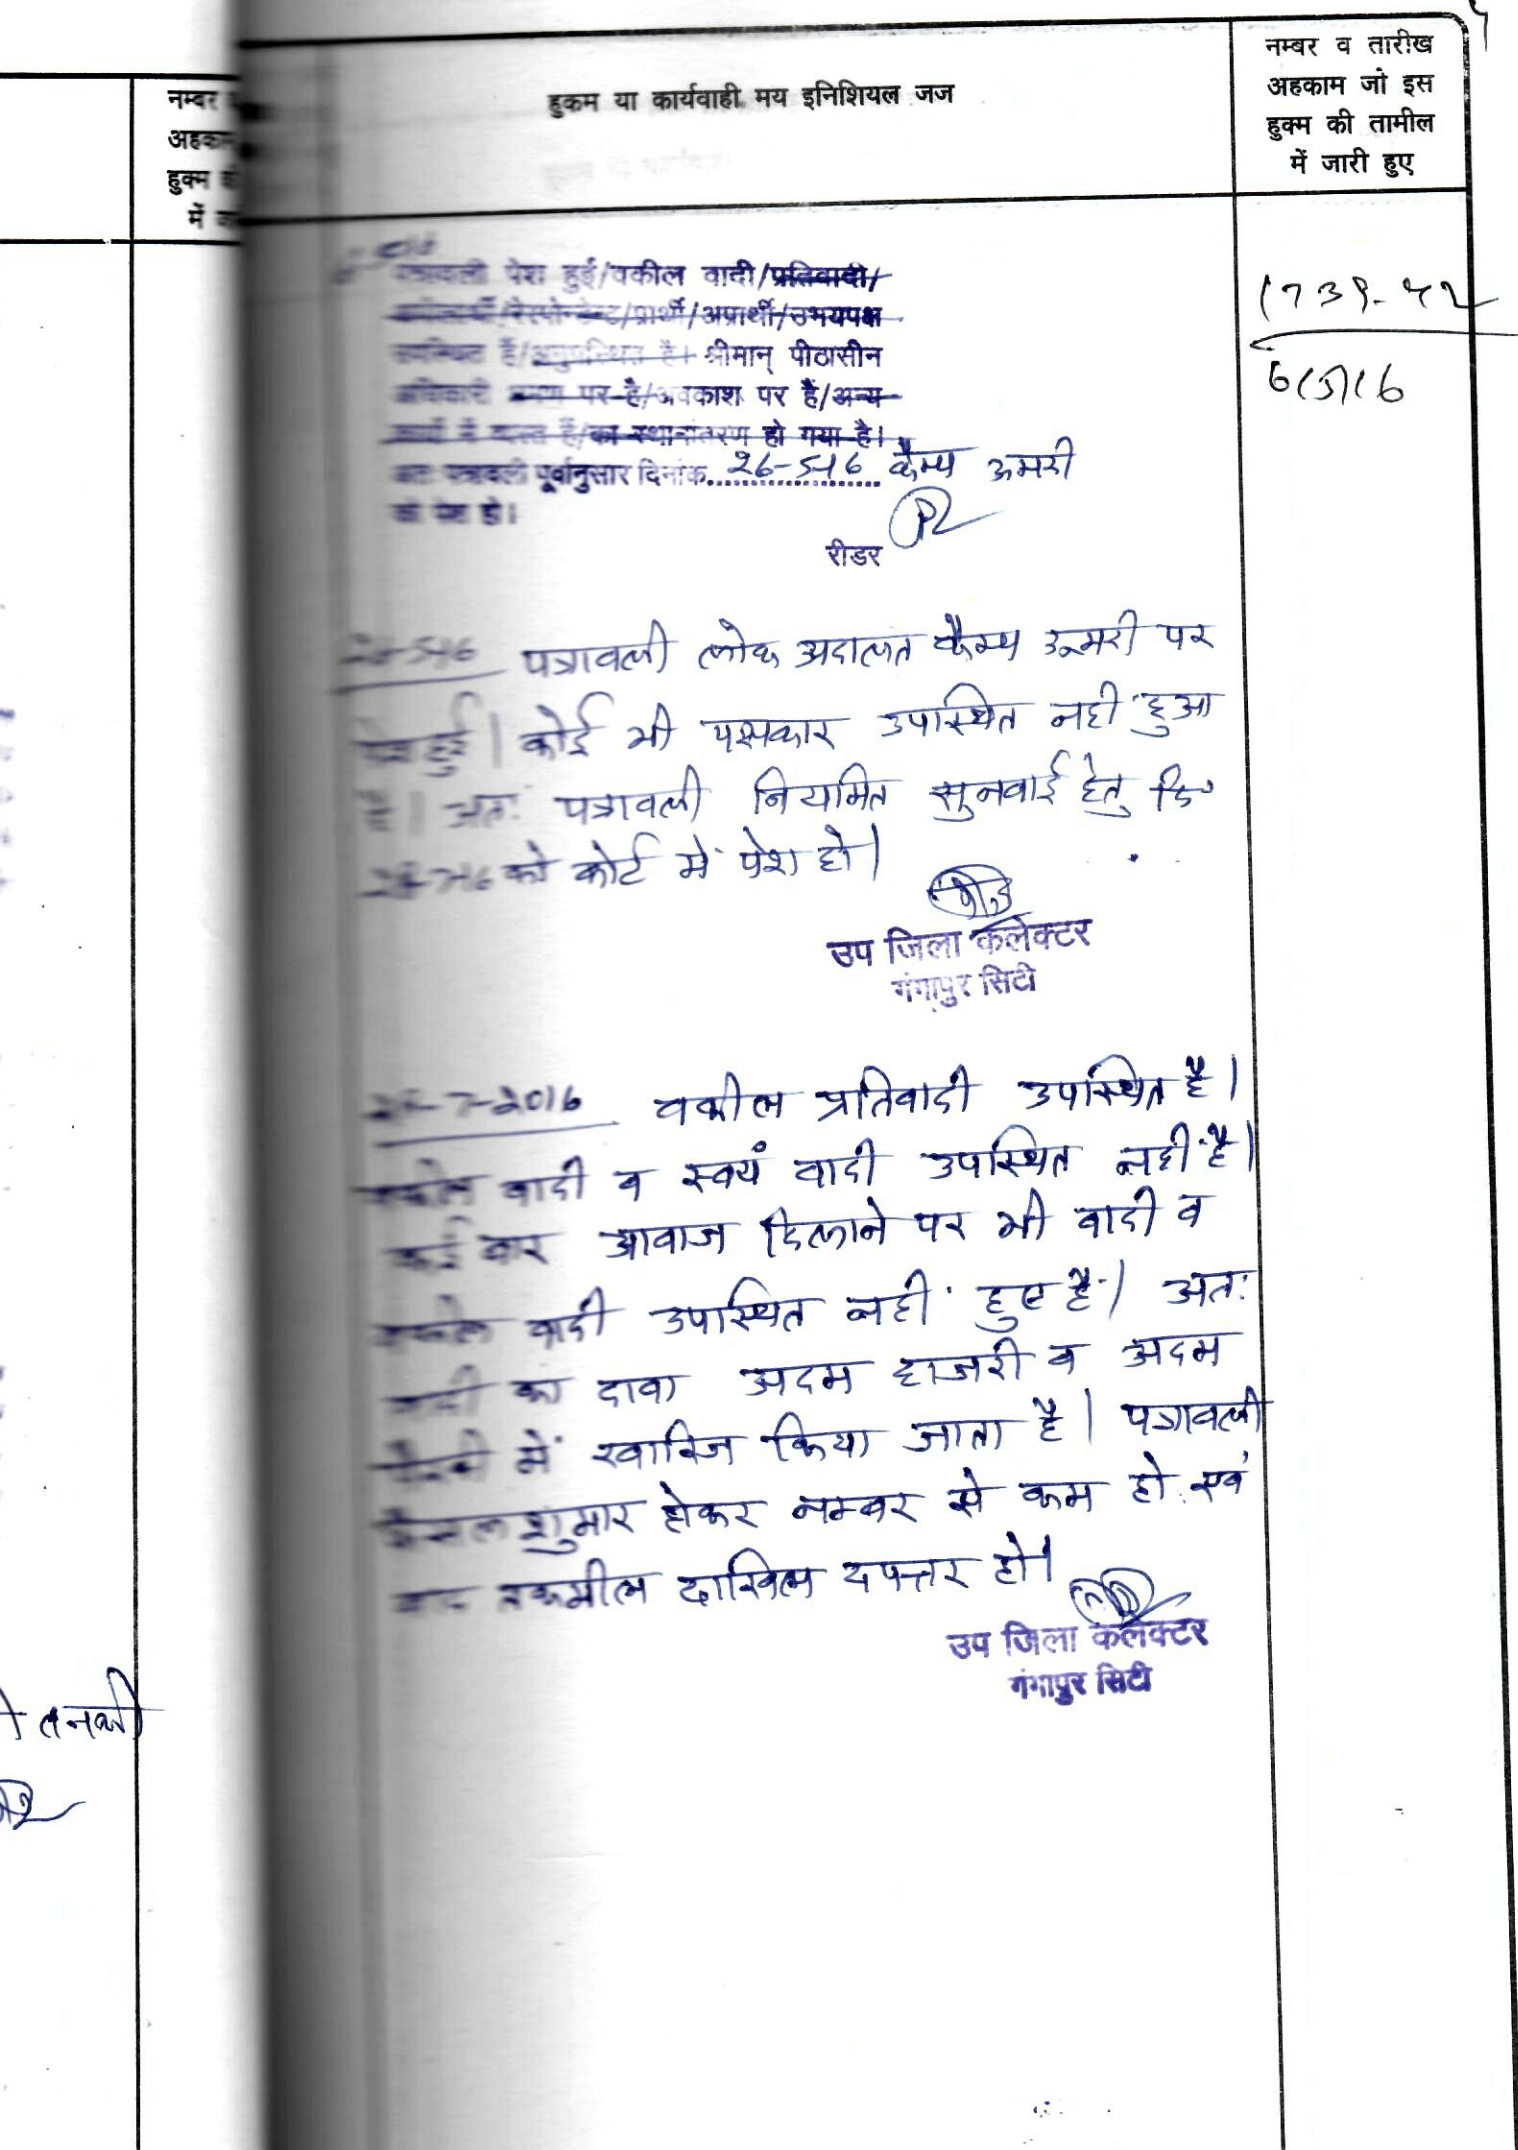 हुकम या कार्यवाही मय इनिशियल जज
नम्बर व तारीख
अहकाम जो इस
हुक्म की तामील
में जारी हुए
नम्बर
अहकाम
हुक्म
में
पत्रावली पेश हुई/वकील वादी/प्रतिवादी/
रेस्पोन्डेन्ट/प्रार्थी/अप्रार्थी/उभयपक्ष
उपस्थित है/अनुपस्थित है। श्रीमान् पीठासीन
अधिकारी भ्रमण पर है/अवकाश पर है/अन्य
कार्यो में व्यस्त है/का स्थानांतरण हो गया है।
अतः पत्रावली पूर्वानुसार दिनांक 26-5-16 कैम्प उमरी
को पेश हो।
रीडर
1739-42
6/5/16
26-5-16 पत्रावली लोक अदालत कैम्प उमरी पर
पेश हुई। कोई भी पक्षकार उपस्थित नही हुआ
है। अतः पत्रावली नियमित सुनवाई हेतु दि०
को कोर्ट में पेश हो।
उप जिला कलेक्टर
गंगापुर सिटी
7-2016 वकील प्रतिवादी उपस्थित है।
वकील वादी व स्वयं वादी उपस्थित नही है।
कई बार आवाज दिलाने पर भी वादी व
वकील वादी उपस्थित नही हुए है। अतः
वादी का दावा अदम हाजरी व अदम
पैरवी में खारिज किया जाता है। पत्रावली
फैसल शुमार होकर नम्बर से कम हो एवं
बाद तकमील दाखिल दफ्तर हो।
उप जिला कलेक्टर
गंगापुर सिटी